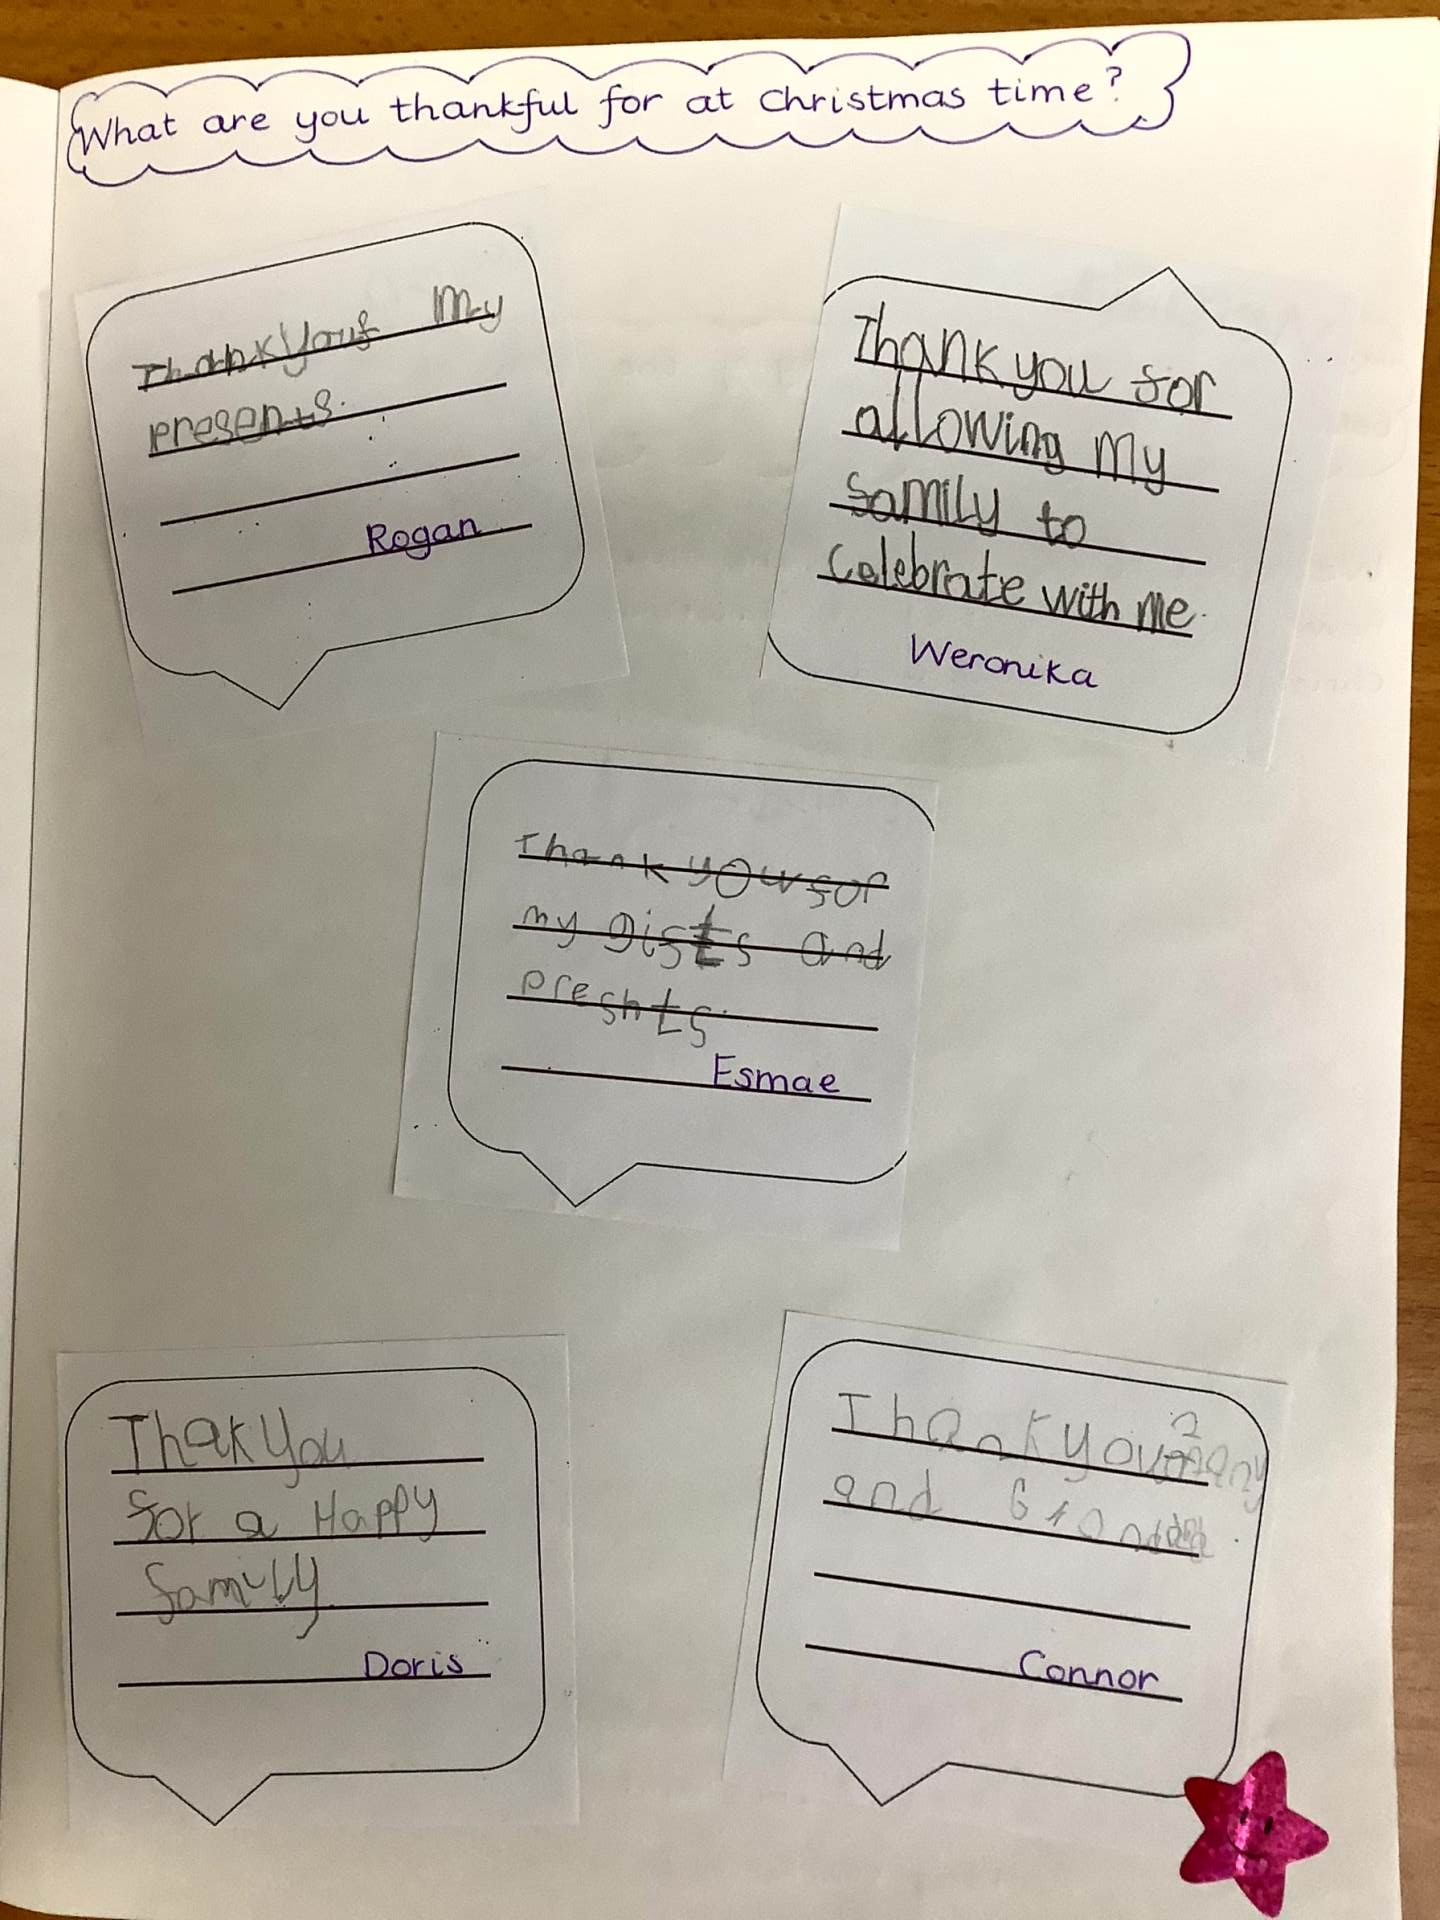 What are you thankful for at Christmas time?
Thankyouf My
presents.
Rogan
Thank you for
allowing My
family to
Celebrate with me.
Weronika
Thank you for
my gifts and
preshts.
Esmae
Thak You
for a Happy
family
Doris
Thank you
and
Connor